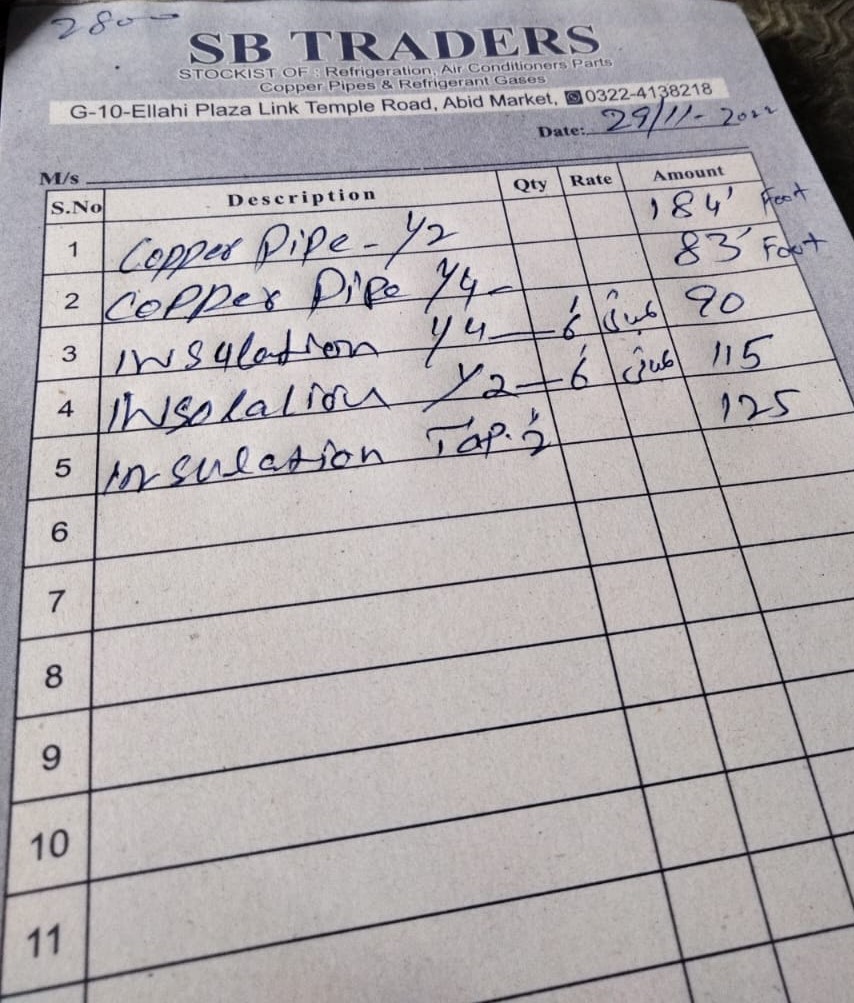 280-
SB TRADERS
STOCKIST OF : Refrigeration, Air Conditioners Parts
Copper Pipes & Refrigerant Gases
G-10-Ellahi Plaza Link Temple Road, Abid Market, 0322-4138218
Date: 29/11-2022
M/s
S.No Description Qty Rate Amount
1 Copper Pipe - 1/2 184' Foot
2 Copper Pipe 1/4 - 83' Foot
3 Insulation 1/4 — 6' فٹ 90
4 Insolation 1/2 — 6' فٹ 115
5 Insulation Tap. 2' 125
6
7
8
9
10
11